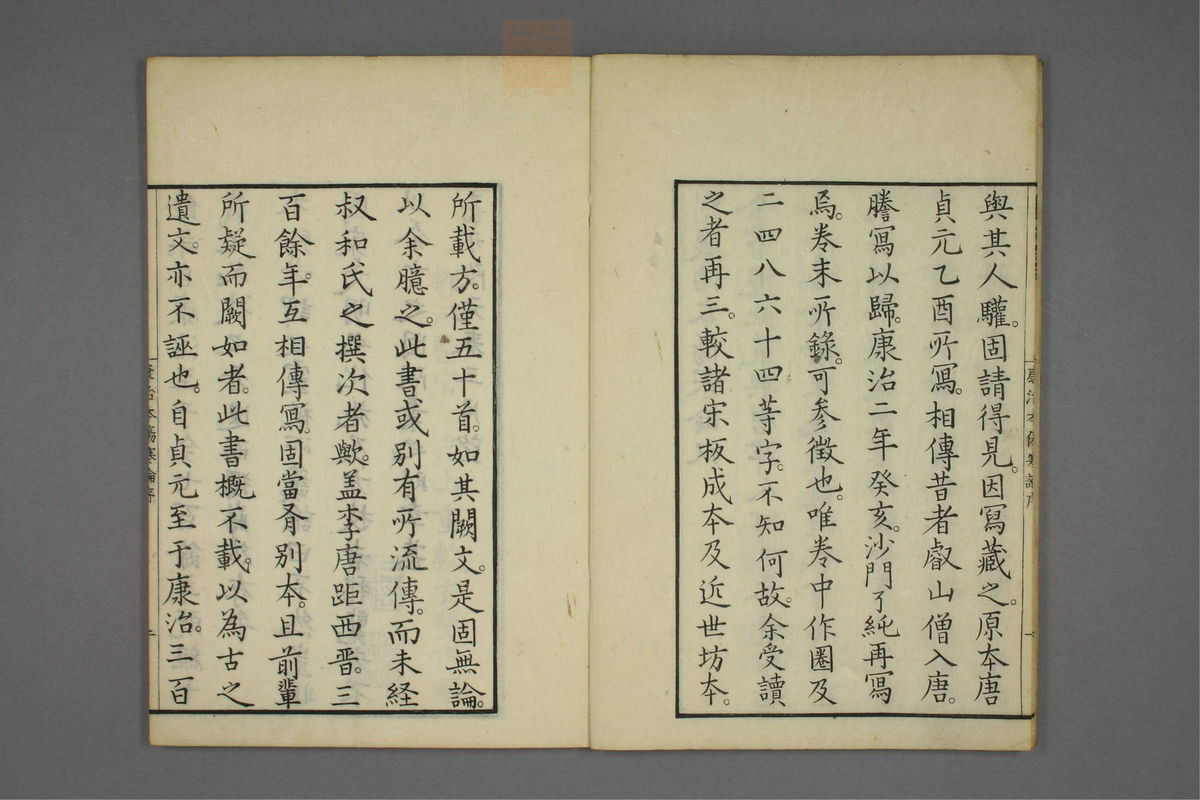 與其人驩。固請得見。因寫藏之。原本唐
貞元乙酉所寫。相傳昔者叡山僧入唐。
謄寫以歸。康治二年癸亥。沙門了純再寫
焉。卷末所錄。可參徵也。唯卷中作圈及
二四八六十四等字。不知何故。余受讀
之者再三。較諸宋板成本及近世坊本。
所載方。僅五十首。如其闕文。是固無論。
以余臆之。此書或別有所流傳。而未経
叔和氏之撰次者歟。盖李唐距西晋。三
百餘年。互相傳寫。固當胥別本。且前輩
所疑而闕如者。此書概不載。以為古之
遺文。亦不誣也。自貞元至于康治。三百
康治本傷寒論序 一
康治本傷寒論序 二